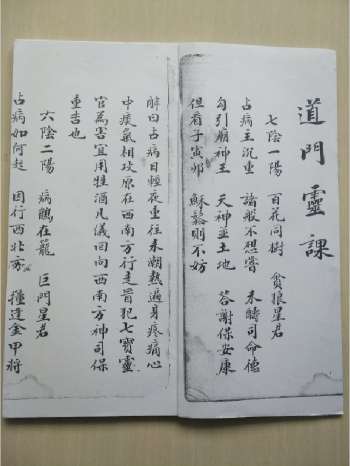 道門靈課
七陰一陽 百花同樹 貪狼星君
占病主沉重 諸般不想嘗 未疇司命德
勾引廟神王 天神並土地 答謝保安康
但看子寅卯 穌鬆則不妨
解曰占病日輕夜重往來潮熱遍身疼痛心
中痰氣相攻原在西南方行走冒犯七寶靈
官為害宜用牲酒凡儀回向西南方神司保
重吉也
六陰二陽 病鶴在籠 巨門星君
占病如何起 因行西北方 撞逢金甲將